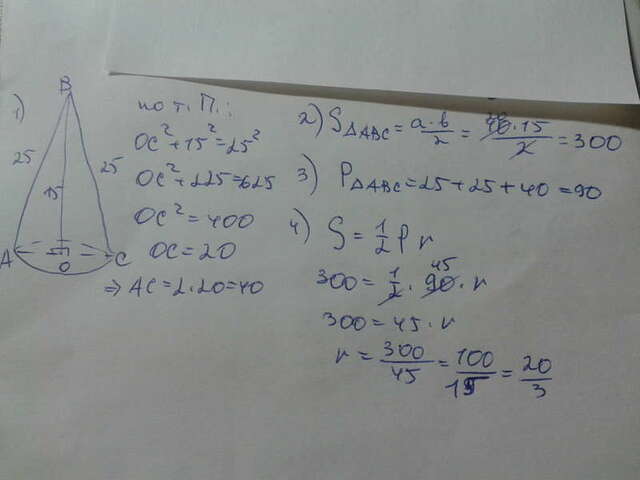 1)
B
25
25
15
A
O
C
по т. П.:
OC² + 15² = 25²
OC² + 225 = 625
OC² = 400
OC = 20
⇒ AC = 2·20 = 40
2) S△ABC = a·b/2 = 40·15/2 = 300
3) P△ABC = 25 + 25 + 40 = 90
4) S = 1/2 P r
45
300 = 1/2 · 90 · r
300 = 45 · r
r = 300/45 = 100/15 = 20/3